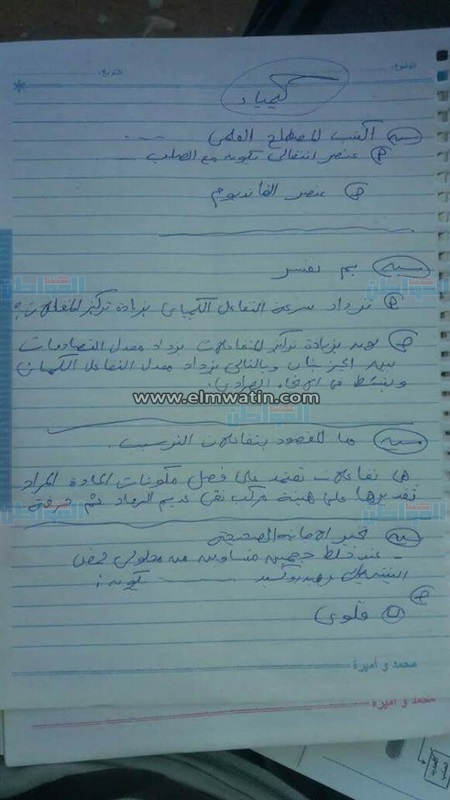 الموضوع: التاريخ:
كيمياء
س/ أكتب المصطلح العلمي ----
م) عنصر انتقالى تكونه مع الصلب
ج) عنصر الفانديوم
س/ بم تفسر
م) تزداد سرعة التفاعل الكيميائى بزيادة تركيز المتفاعلات؟
ج) لأنه بزيادة تركيز المتفاعلات يزداد معدل التصادمات
بين الجزيئات وبالتالى يزداد معدل التفاعل الكيميائى
وينشط فى الاتجاه الطردى.
www.elmwatin.com
س/ ما المقصود بتفاعلات الترسيب.
تفاعلات تعتمد على فصل مكونات المادة المراد
تقديرها على هيئة مركب نقى عديم الذوبان ثم
س/ تخير الإجابة الصحيحة
- عند خلط حجمين متساويين من محلولى حمض
هيدروكسيد ---- تكون:
ج) قلوى
محمد و أميرة
محمد و أميرة